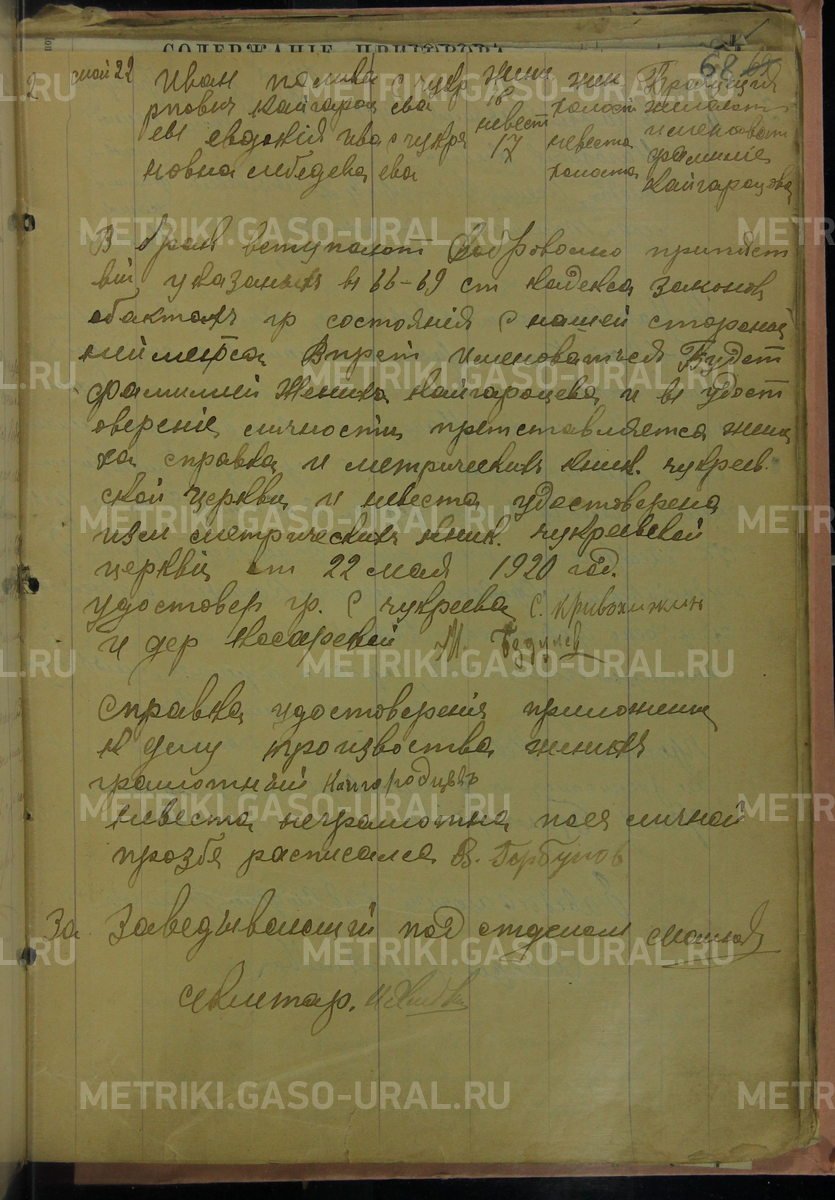 СОДЕРЖАНІЕ ПРИГОВОРА
68
2 май 22 Иван с чукр жени жен
рпович Кайгарод ева 18 холост
евы евдокія Ива с чукре невест 17 невеста именоват
новна лебедева ева холоста фамиліе
Кайгародцева
В брак вступают добровольно припятст
вій указаных в 66-69 ст кадекса законов
обактах гр состоянія с нашей стороны
Впреть именоваться Будет
фамилией Жениха Кайгародцева и в удост
оверение личности претставляется жени
ха справка и метрических книг. чукреев.
ской церкви и невеста удостоверена
из метрических книг. чукреевской
церкви от 22 мая 1920 год.
удостовер гр. с чукреева С. Кривохижин
и дер Косаревой М. Бздулев
Справка удостоверения приложены
к делу произвоства жених
грамотный Кайгородцевъ
невеста неграмотна поея личной
прозбе расписался В. Горбунов
За Заведывающий под отделом
секлетар.
METRIKI.GASO-URAL.RU